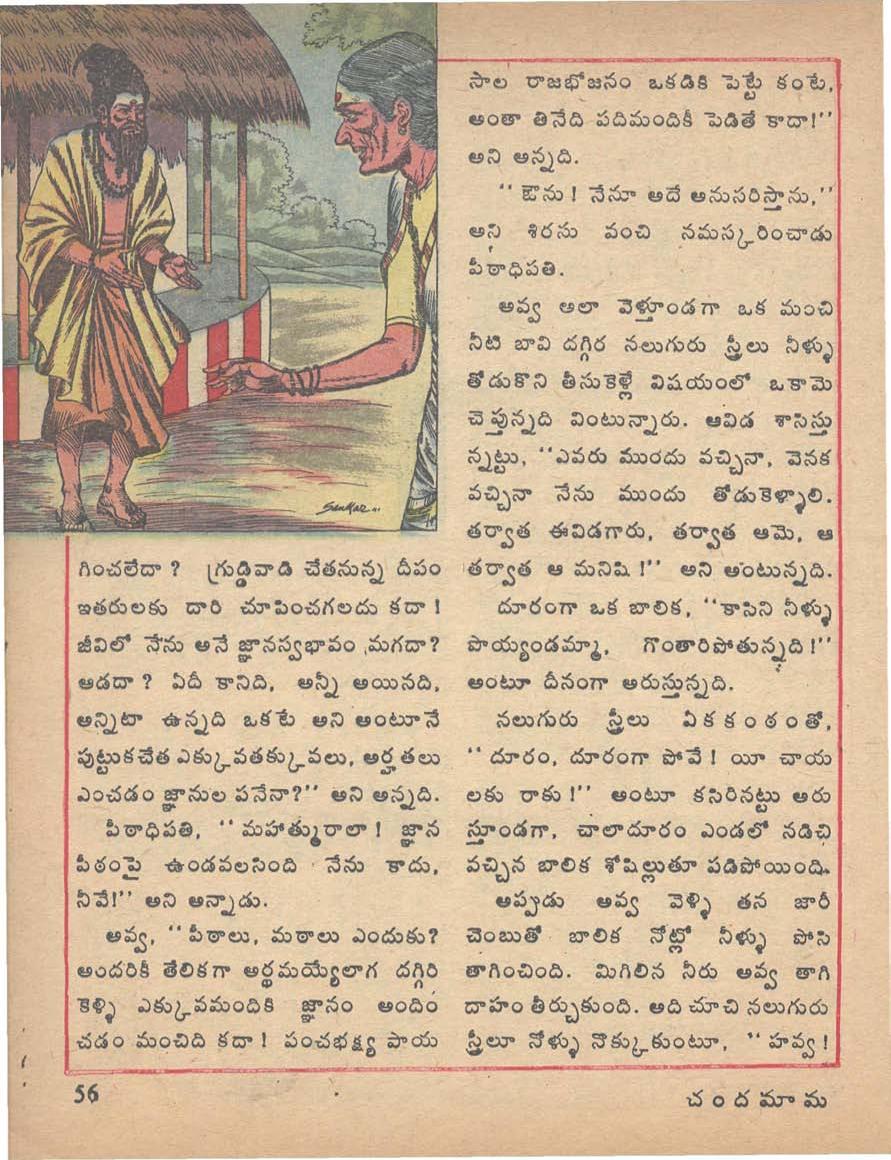 గించలేదా ? గ్రుడ్డివాడి చేతనున్న దీపం
ఇతరులకు దారి చూపించగలదు కదా !
జీవిలో నేను అనే జ్ఞానస్వభావం మగదా?
ఆడదా ? ఏదీ కానిది, అన్నీ అయినది,
అన్నిటా ఉన్నది ఒకటే అని అంటూనే
పుట్టుకచేత ఎక్కువతక్కువలు, అర్హతలు
ఎంచడం జ్ఞానుల పనేనా?'' అని అన్నది.
పీఠాధిపతి, ''మహాత్మురాలా ! జ్ఞాన
పీఠంపై ఉండవలసింది నేను కాదు,
నీవే!'' అని అన్నాడు.
అవ్వ, ''పీఠాలు, మఠాలు ఎందుకు?
అందరికీ తేలికగా అర్థమయ్యేలాగ దగ్గిరి
కెళ్ళి ఎక్కువమందికి జ్ఞానం అందిం
చడం మంచిది కదా ! పంచభక్ష్య పాయ
సాల రాజభోజనం ఒకడికి పెట్టే కంటే,
అంతా తినేది పదిమందికీ పెడితే కాదా!''
అని అన్నది.
''ఔను ! నేనూ అదే అనుసరిస్తాను,''
అని శిరసు వంచి నమస్కరించాడు
పీఠాధిపతి.
అవ్వ అలా వెళ్తూండగా ఒక మంచి
నీటి బావి దగ్గిర నలుగురు స్త్రీలు నీళ్ళు
తోడుకొని తీసుకెళ్లే విషయంలో ఒకామె
చెప్తున్నది వింటున్నారు. ఆవిడ శాసిస్తు
న్నట్టు, ''ఎవరు ముందు వచ్చినా, వెనక
వచ్చినా నేను ముందు తోడుకెళ్ళాలి.
తర్వాత ఈవిడగారు, తర్వాత ఆమె, ఆ
తర్వాత ఆ మనిషి !'' అని అంటున్నది.
దూరంగా ఒక బాలిక, ''కాసిని నీళ్ళు
పొయ్యండమ్మా, గొంతారిపోతున్నది !''
అంటూ దీనంగా అరుస్తున్నది.
నలుగురు స్త్రీలు ఏకకంఠంతో,
''దూరం, దూరంగా పోవే ! యీ చాయ
లకు రాకు !'' అంటూ కసిరినట్టు అరు
స్తూండగా, చాలాదూరం ఎండలో నడిచి
వచ్చిన బాలిక శోషిల్లుతూ పడిపోయింది.
అప్పుడు అవ్వ వెళ్ళి తన జారీ
చెంబుతో బాలిక నోట్లో నీళ్ళు పోసి
తాగించింది. మిగిలిన నీరు అవ్వ తాగి
దాహం తీర్చుకుంది. అది చూచి నలుగురు
స్త్రీలూ నోళ్ళు నొక్కుకుంటూ, ''హవ్వ !
Sankar
56
చందమామ